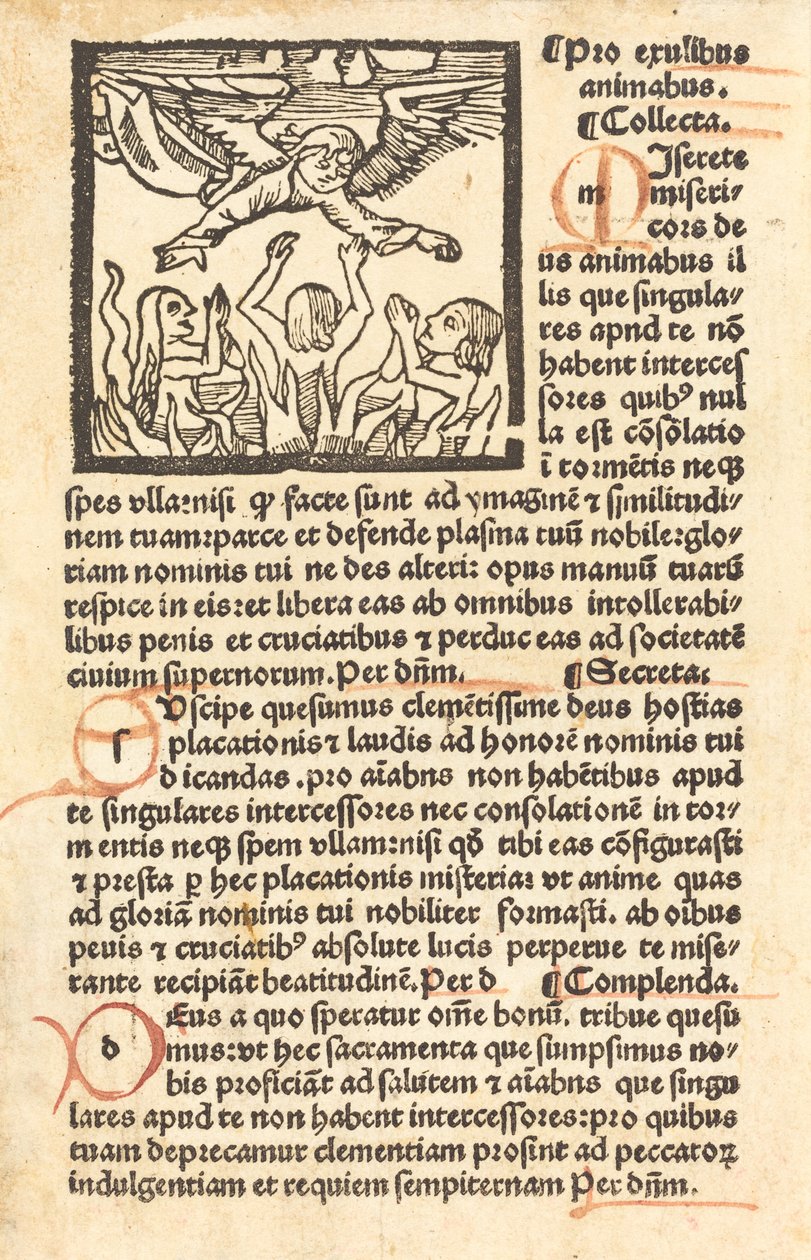 ¶Pro exulibus
animabus.
¶Collecta.
MIserete
m miseri-
cors de
us animabus il
lis que singula/
res apud te nō
habent interces
sores quibꝰ nul
la est cōsōlatio
ī tormētis neqꝫ
spes vlla:nisi ꝙ facte sunt ad ymaginē ⁊ similitudi/
nem tuam:parce et defende plasma tuū nobile:glo/
riam nominis tui ne des alteri: opus manuū tuarū
respice in eis:et libera eas ab omnibus intollerabi/
libus penis et cruciatibus ⁊ perduc eas ad societatē
ciuium supernorum.Per dn̄m. ¶Secreta.
SVscipe quesumus clemētissime deus hostias
s placationis⁊ laudis ad honorē nominis tui
dicandas .pro aīabns non habētibus apud
te singulares intercessores nec consolationē in tor/
mentis neqꝫ spem vllam:nisi qð tibi eas cōfigurasti
⁊ presta ꝑ hec placationis misteria: vt anime quas
ad gloriā nominis tui nobiliter formasti. ab oībus
peuis ⁊ cruciatibꝰ absolute lucis perperue te mise/
rante recipiāt beatitudinē.Per d ¶Complenda.
DEus a quo speratur om̄e bonū. tribue quesu
d mus:vt hec sacramenta que sumpsimus no/
bis proficiāt ad salutem ⁊ aīabns que singu
lares apud te non habent intercessores:pro quibus
tuam deprecamur clementiam prosint ad peccatoꝝ
indulgentiam et requiem sempiternam Per dn̄m.